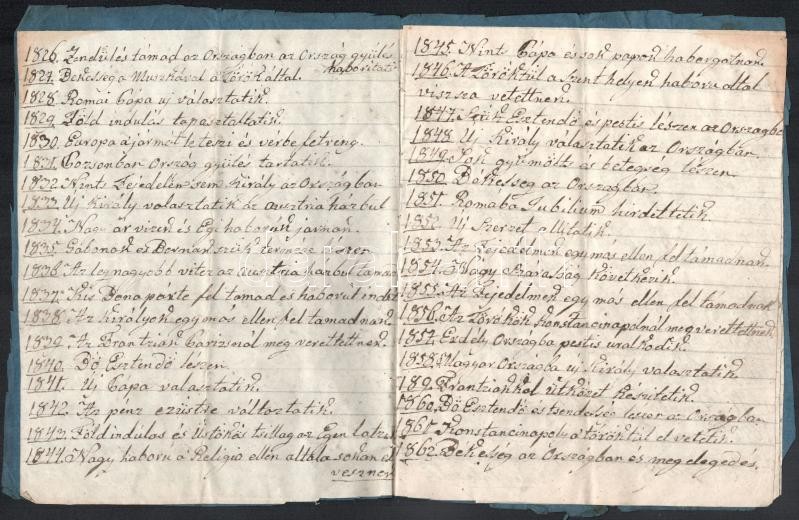 1826. Zendülés támad az Országban az Ország gyülés
haboritati
1827. Békesség a Muszkával a Török által.
1828. Romai Pápa uj választatik.
1829. Föld indulás tapasztaltatik.
1830. Europa a jármot le teszi és verbe fetreng.
1831. Posonban Ország gyülés tartatik.
1832. Nints Fejedelem sem Király az Országban
1833. Uj Király választatik az Austria házbul
1834. Nagy ár vizen és Egi háboruk járnak.
1835. Gabonak és Bornak szük termése lészen
1836. Az legnagyobb vitéz az Austria házbul támad
1837. Kis Bonaparte fel támad és háborut indit
1838. Az Királyok egymas ellen fel támadnak
1839. Az Frantziak Parizsnál meg verettettnek.
1840. Bő Esztendő leszen.
1841. Uj Pápa valasztatik.
1842. Az pénz ezüstre változtatik.
1843. Föld indulas és Üstökös tsillag az Égen latza
1844. Nagy haboru a Religio ellen által a sokan el
vesznek
1845. Nints Pápa és sok papok haborgatnak.
1846. A Töröktül a szent helyen haboru által
viszsza vetettnek.
1847. Szük Esztendő és pestis lészen az Országba
1848. Uj Király választatik az Országban
1849. Sok gyümölts és betegség lészen.
1850. Békesség az Országban.
1851. Romába Jubilium hirdettetik.
1852. Uj Szerzet allitatik.
1853. Az Fejedelmek egymas ellen fel tamadnak.
1854. Nagy Szárasság követkevik.
1855. Az Fejedelmek egy mas ellen fel tamadnak
1856. Az Törökök Konstancinapolnál meg verettettnek
1857. Erdély Országba pestis uralkodik.
1858. Magyar Országba uj Király valasztatik.
189. Frantziakkal ütközet készitetik.
1860. Bő Esztendő és tsendesség leszen az Országban
1861. Konstancinapoly a töröktül el vetetik.
1862. Békesség az Országban és meg elegedés.